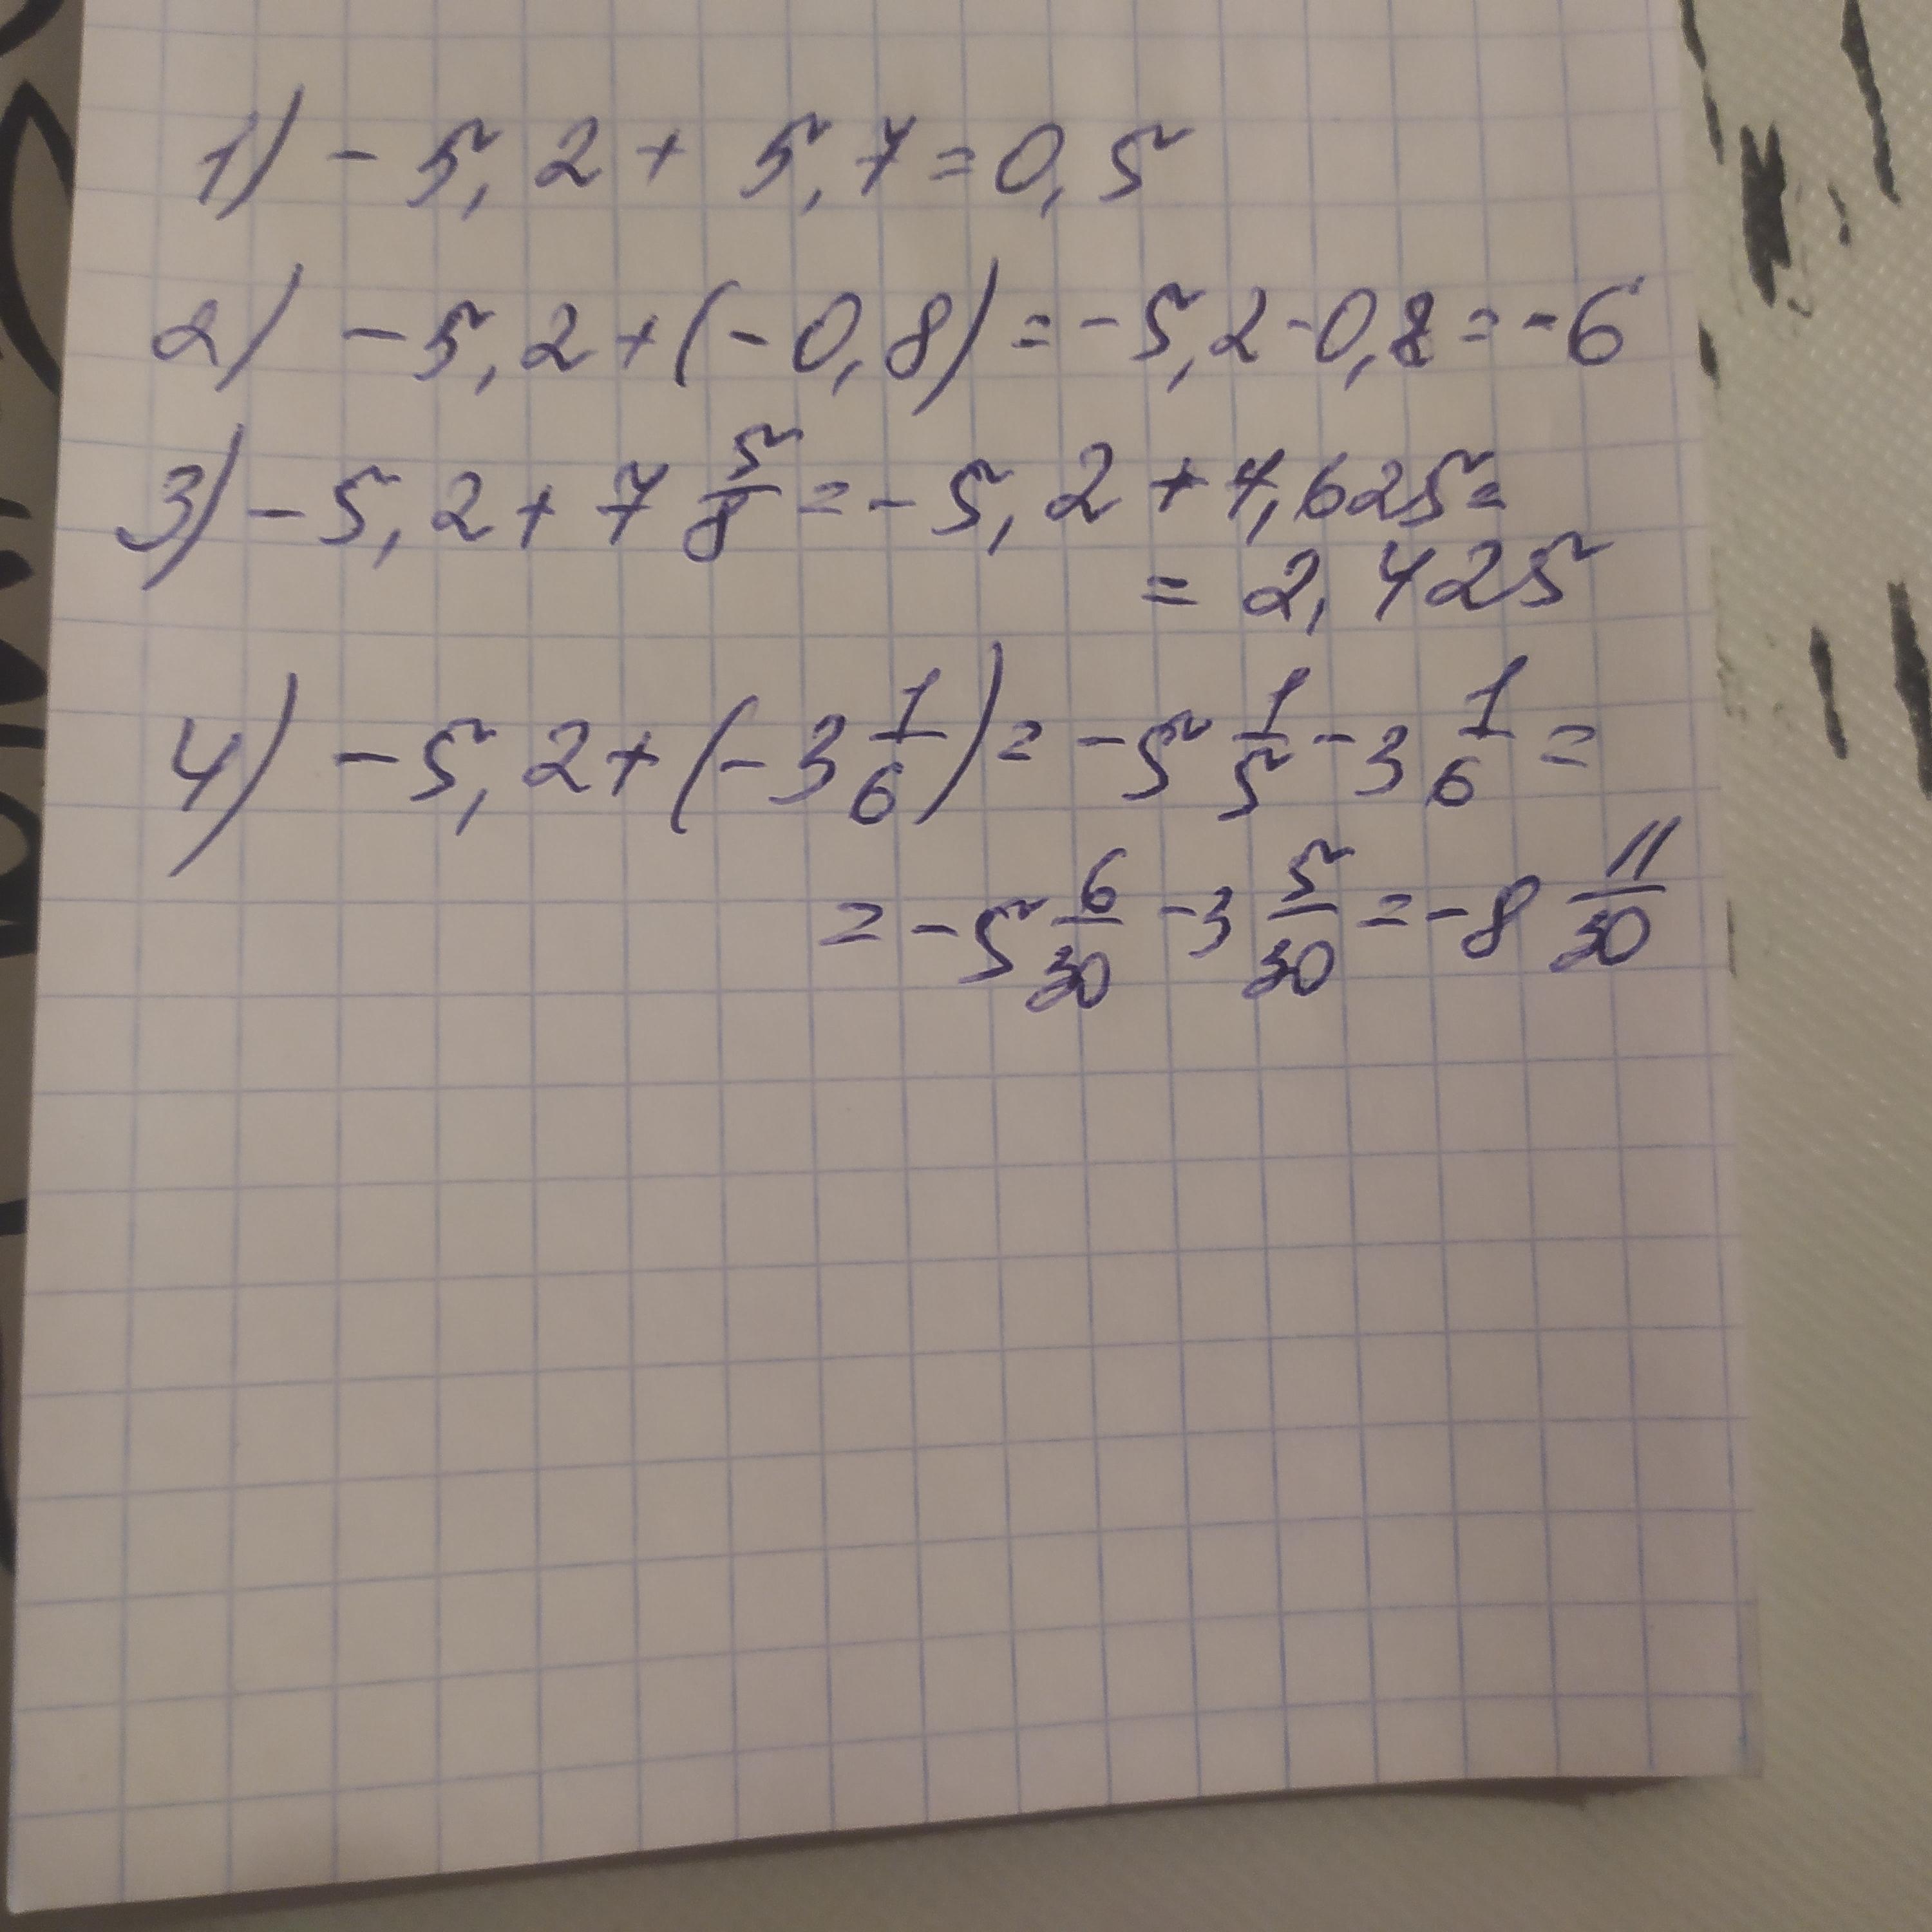 1) - 5,2 + 5,7 = 0,5
2) - 5,2 + (- 0,8) = - 5,2 - 0,8 = - 6
3) - 5,2 + 7 5/8 = - 5,2 + 7,625 =
= 2,425
4) - 5,2 + (- 3 1/6) = - 5 1/5 - 3 1/6 =
= - 5 6/30 - 3 5/30 = - 8 11/30